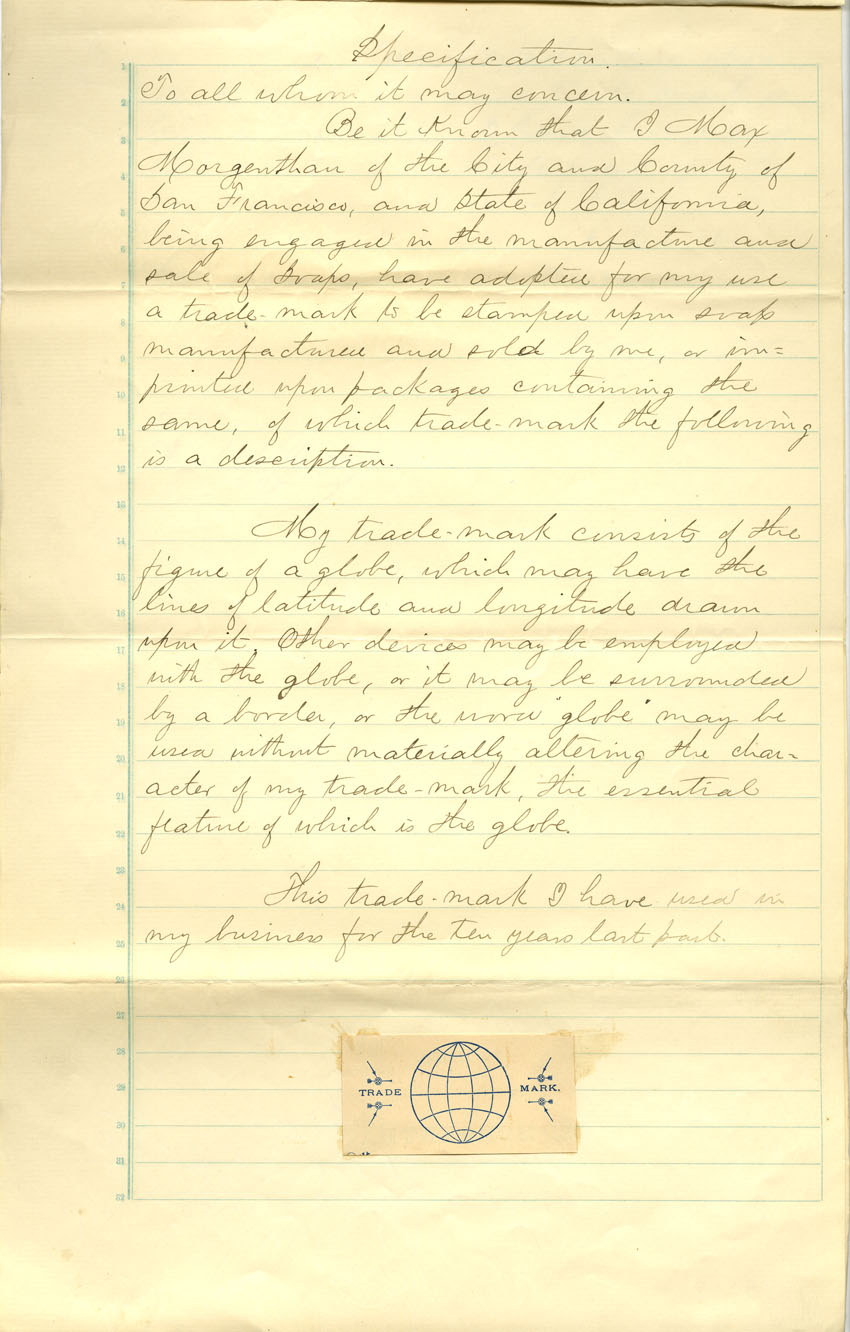 Specification.
To all whom it may concern.
Be it Known that I Max
Morgenthau of the City and County of
San Francisco, and State of California,
being engaged in the manufacture and
sale of Soaps, have adopted for my use
a trade-mark to be stamped upon soap
manufactured and sold by me, or im=
printed upon packages containing the
same, of which trade-mark the following
is a description.
My trade-mark consists of the
figure of a globe, which may have the
lines of latitude and longitude drawn
upon it. Other devices may be employed
with the globe, or it may be surrounded
by a border, or the word "globe" may be
used without materially altering the char-
acter of my trade-mark, the essential
feature of which is the globe.
This trade-mark I have used in
my business for the ten years last past.
TRADE MARK.
1
2
3
4
5
6
7
8
9
10
11
12
13
14
15
16
17
18
19
20
21
22
23
24
25
26
27
28
29
30
31
32